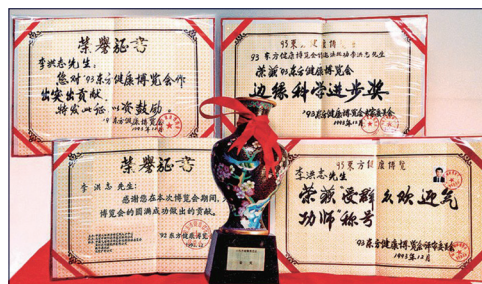 荣誉证书
李洪志先生:
您对'93东方健康博览会作
出突出贡献,
特发此证,以资鼓励。
'93东方健康博览会
1993年12月
93东方健康博览
'93东方健康博览会
李洪志先生
荣获'93东方健康博览会
边缘科学进步奖
'93东方健康博览会
1993年12月
荣誉证书
李洪志先生:
感谢您在本次博览会期间,
博览会的圆满成功做出的贡献。
93东方健康博览
93东方健康博览
李洪志先生:
荣获"受群众欢迎气
功师"称号
'93东方健康博览会评审委员会
1993年12月